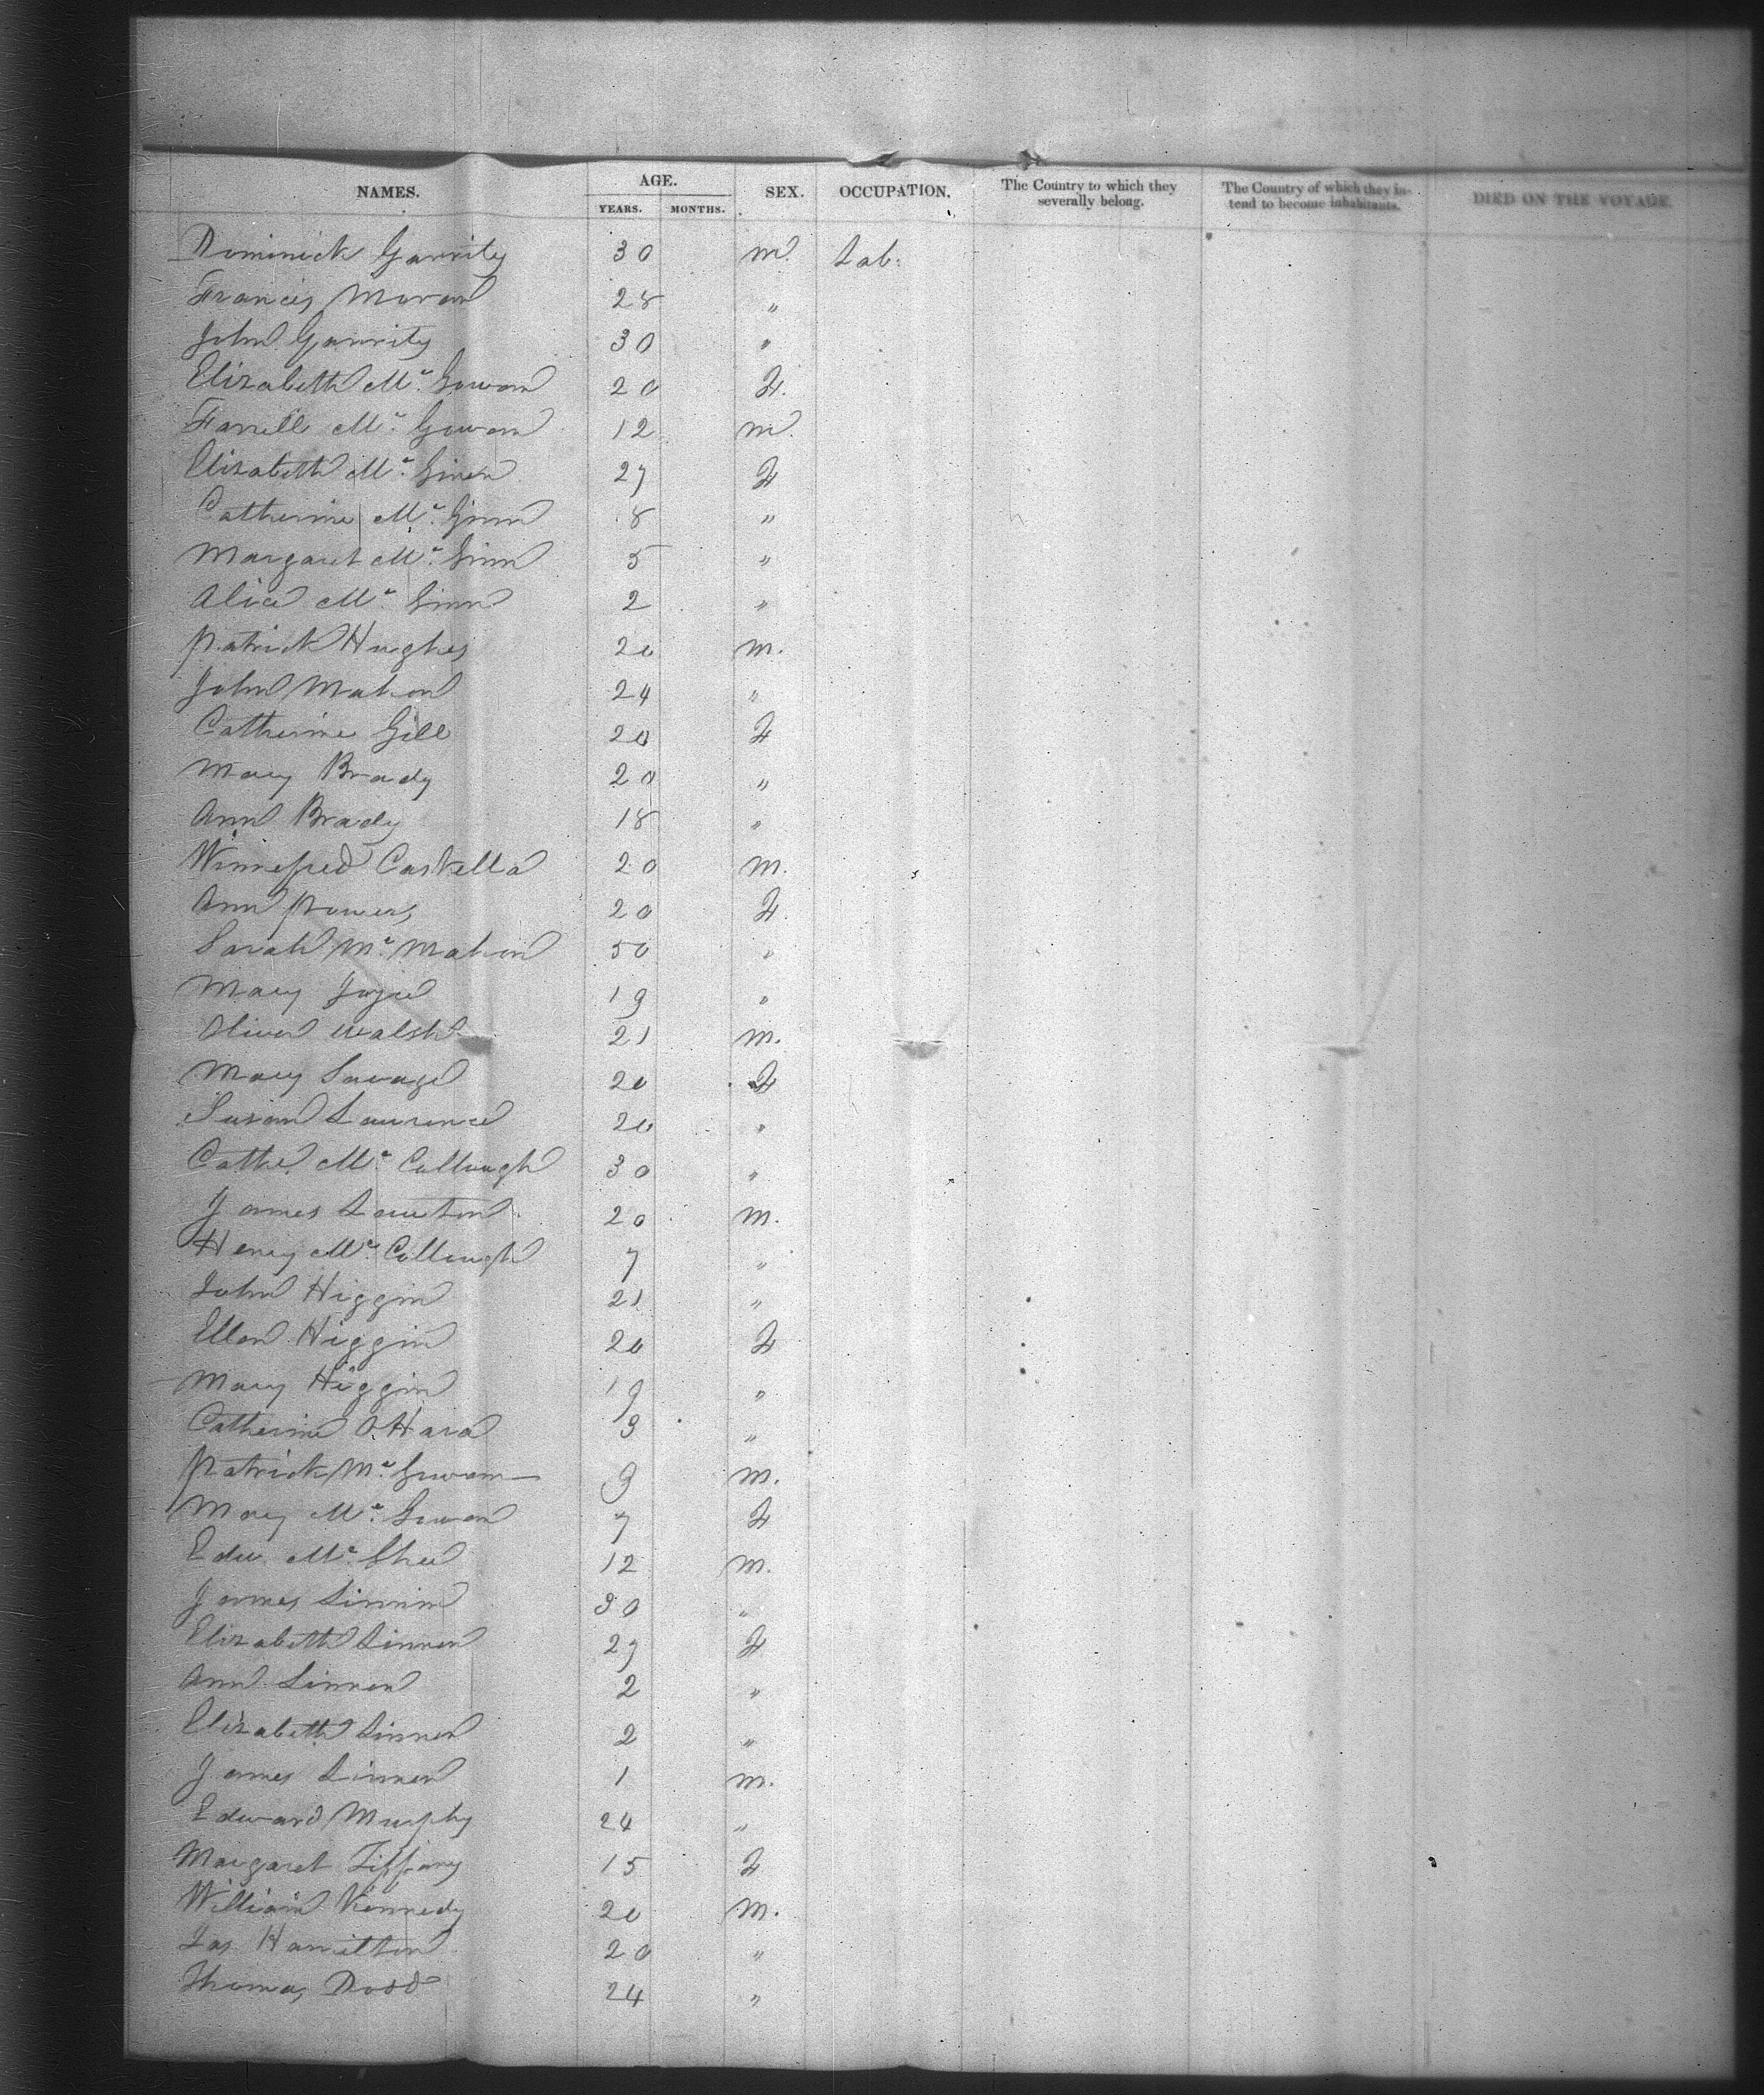 NAMES. AGE. SEX. OCCUPATION. The Country to which they severally belong. The Country of which they intend to become inhabitants. DIED ON THE VOYAGE.
YEARS. MONTHS.
Dominick Garrity 30 m. Lab.
Francis Moran 28 "
John Garrity 30 "
Elizabeth Mc. Gowan 20 F.
Farrell Mc. Gowan 12 m.
Elizabeth Mc. Ginen 27 F
Catherine Mc. Ginn 8 "
Margaret Mc. Ginn 5 "
Alice Mc. Ginn 2 "
Patrick Hughes 20 m.
John Mahon 24 "
Catherine Gill 20 F
Mary Brady 20 "
Ann Brady 18 "
Winnefred Caskella 20 m.
Ann Powers 20 F.
Sarah Mc. Mahon 50 "
Mary Joyce 19 "
Oliver Walsh 21 m.
Mary Savage 20 F
Susan Laurence 20 "
Cathe. Mc. Cullough 30 "
James Lawton 20 m.
Henry Mc. Cullough 7 "
John Higgin 21 "
Ellen Higgin 20 F
Mary Higgin 19 "
Catherine O Hara 3 "
Patrick Mc. Gowan 9 m.
Mary Mc. Gowan 7 F
Edw. Mc. Shee 12 m.
James Linnin 30 "
Elizabeth Linnen 27 F
Ann Linnen 2 "
Elizabeth Linnen 2 "
James Linnen 1 m.
Edward Murphy 24 "
Margaret Tiffany 15 F
William Kennedy 20 m.
Jas. Hamilton 20 "
Thomas Dodd 24 "